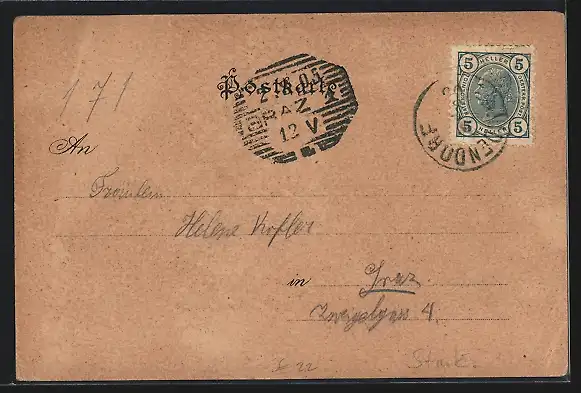 171
Postkarte
GRAZ 1
12 V
5 HELLER 5
5 HELLER 5
ENDORF
An
Fräulein
Helene Kofler
in Graz
4.
22